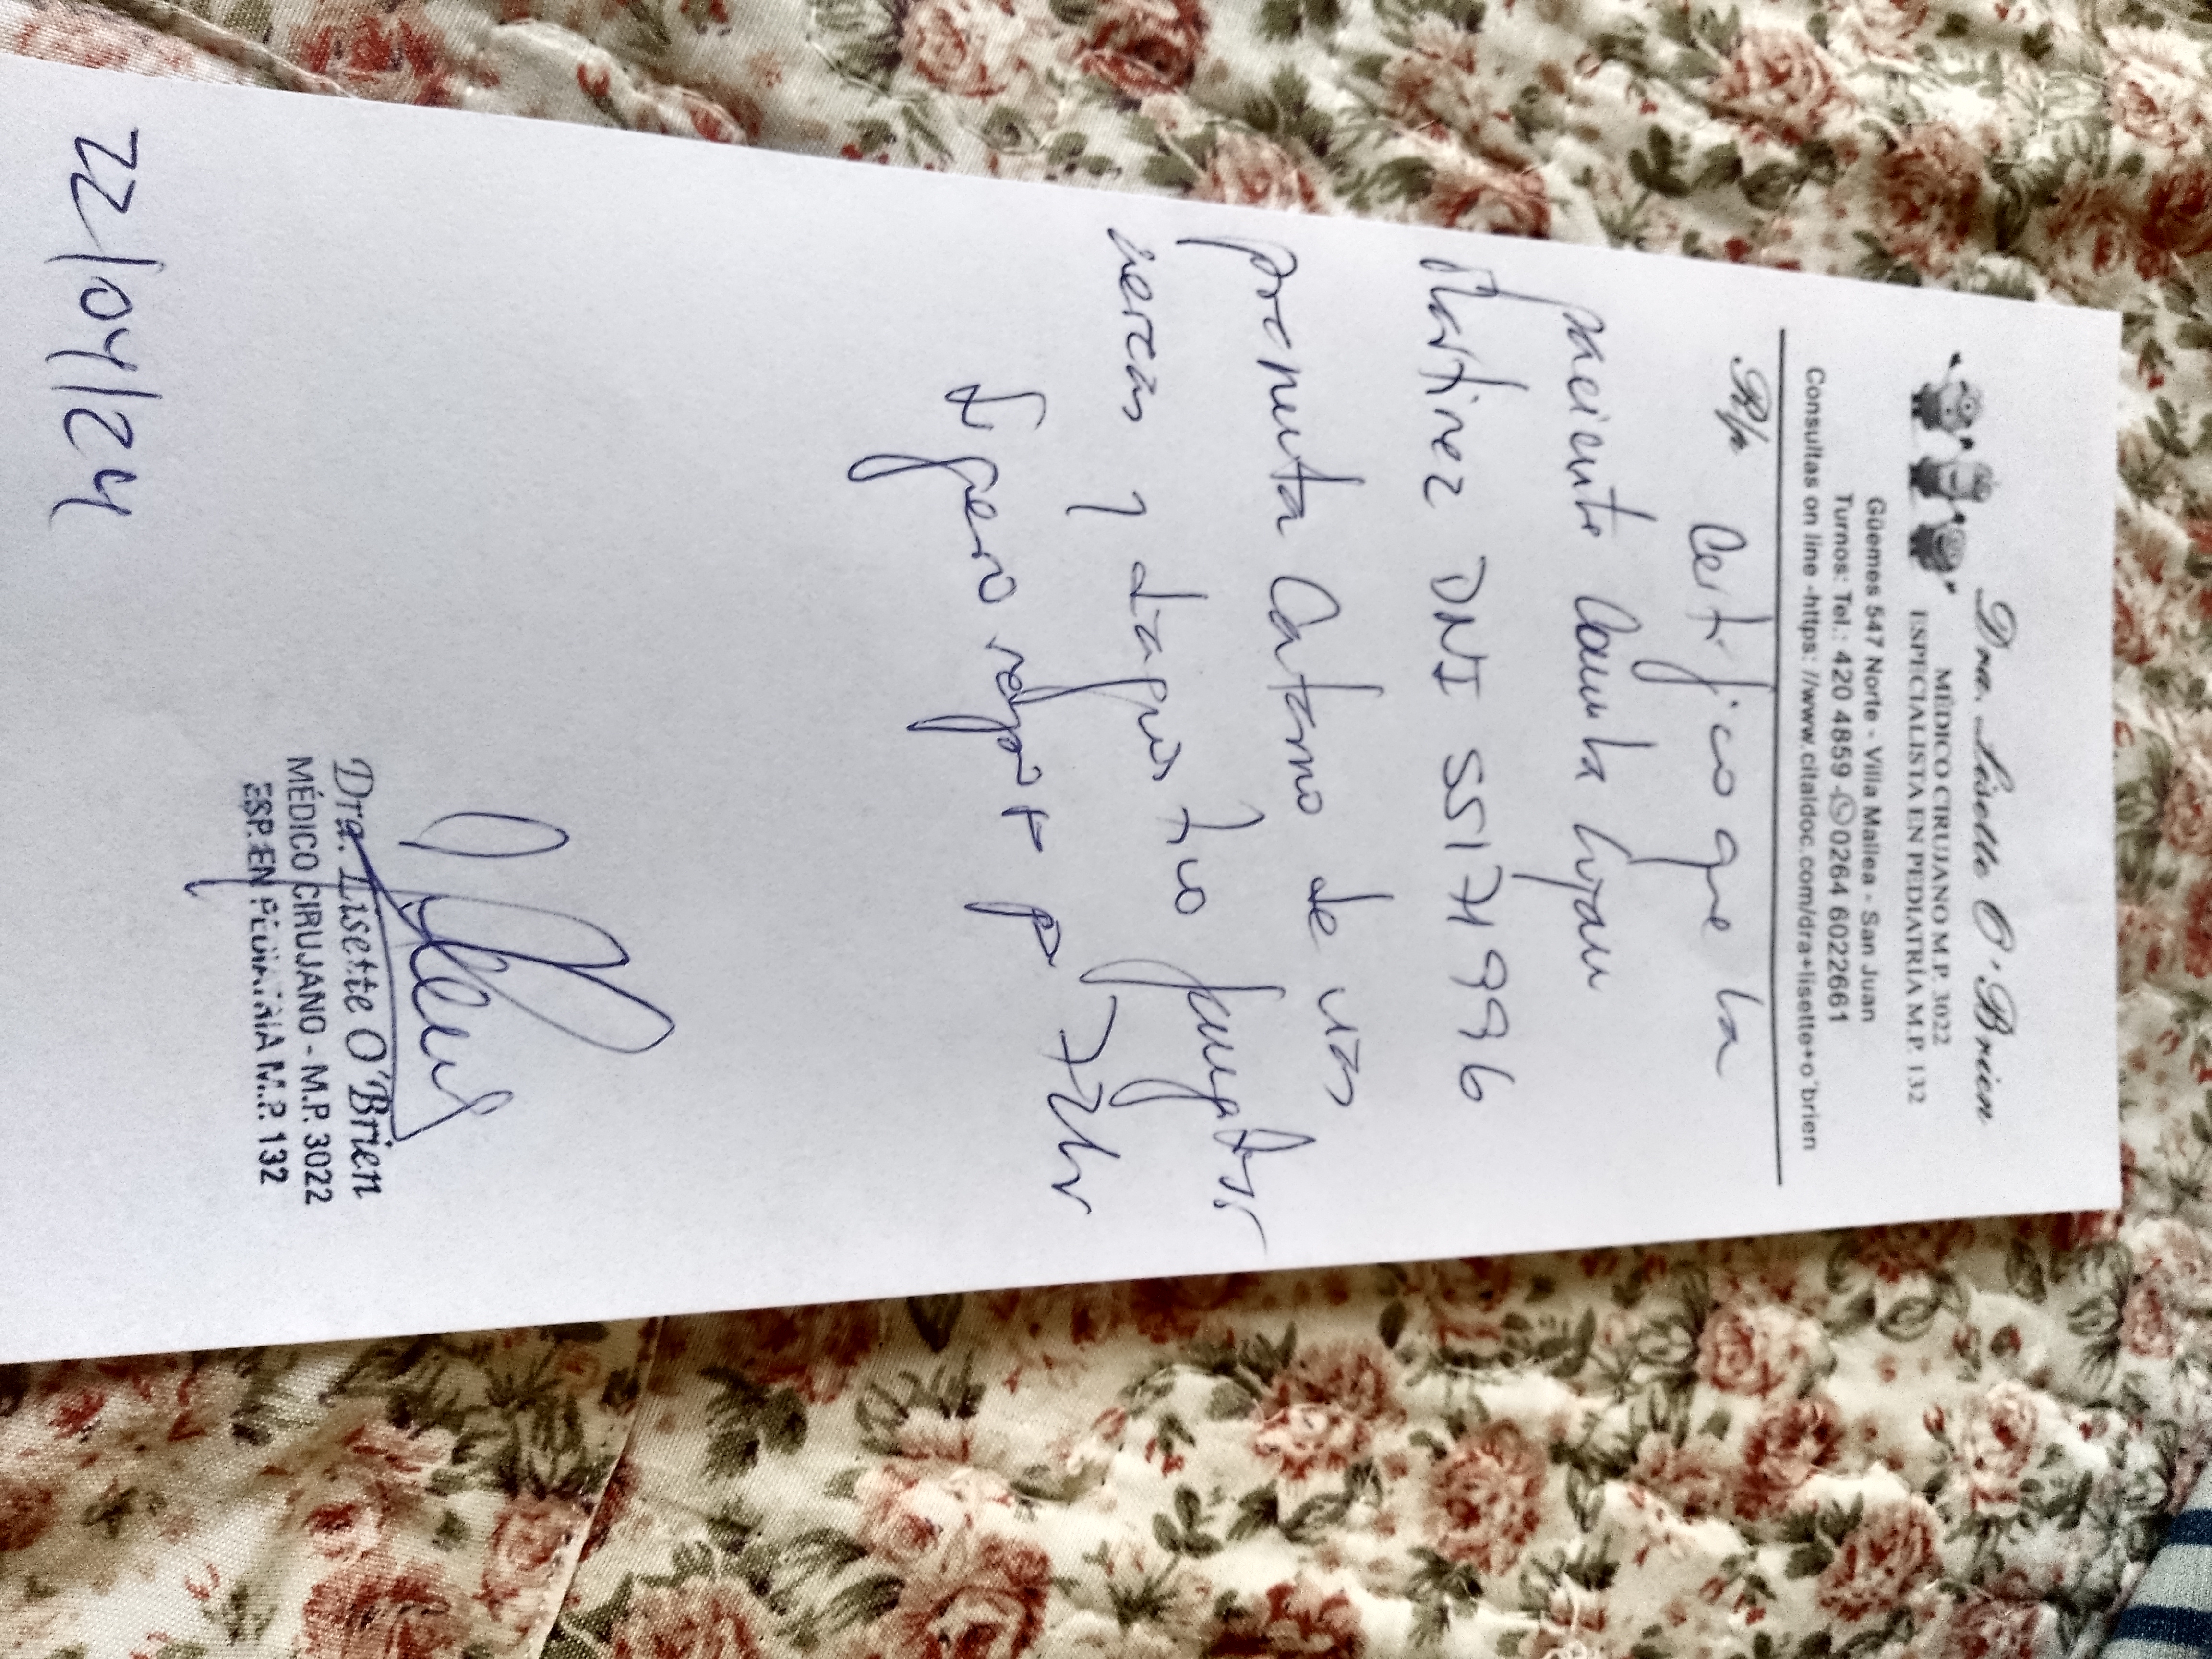 Dra. Lisette O'Brien
MÉDICO CIRUJANO M.P. 3022
ESPECIALISTA EN PEDIATRÍA M.P. 132
Güemes 547 Norte - Villa Mallea - San Juan
Turnos: Tel.: 420 4859 - 0264 6022661
Consultas on line -https: //www.citaldoc.com/dra+lisette+o'brien
R/p
Certifico que la
paciente Camila
Martinez DNI 55171996
presenta Catarro de vias
aereas y
Sugiero reposo p 72hs
Dra. Lisette O'Brien
MÉDICO CIRUJANO - M.P. 3022
ESP. EN PEDIATRÍA M.P. 132
22/04/24